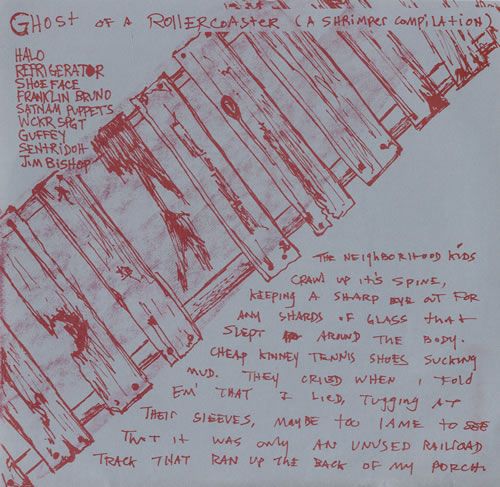 GHOST OF A ROLLERCOASTER (A SHRIMPER COMPILATION)
HALO
REFRIGERATOR
SHOEFACE
FRANKLIN BRUNO
SATNAM PUPPETS
WCKR SPGT
GUFFEY
SENTRIDOH
JIM BISHOP
THE NEIGHBORHOOD KIDS
CRAWL UP IT'S SPINE,
KEEPING A SHARP EYE OUT FOR
ANY SHARDS OF GLASS THAT
SLEPT AROUND THE BODY.
CHEAP KINNEY TENNIS SHOES SUCKING
MUD. THEY CRIED WHEN I TOLD
EM' THAT I LIED, TUGGING AT
THEIR SLEEVES, MAYBE TOO LAME TO SEE
THAT IT WAS ONLY AN UNUSED RAILROAD
TRACK THAT RAN UP THE BACK OF MY PORCH.